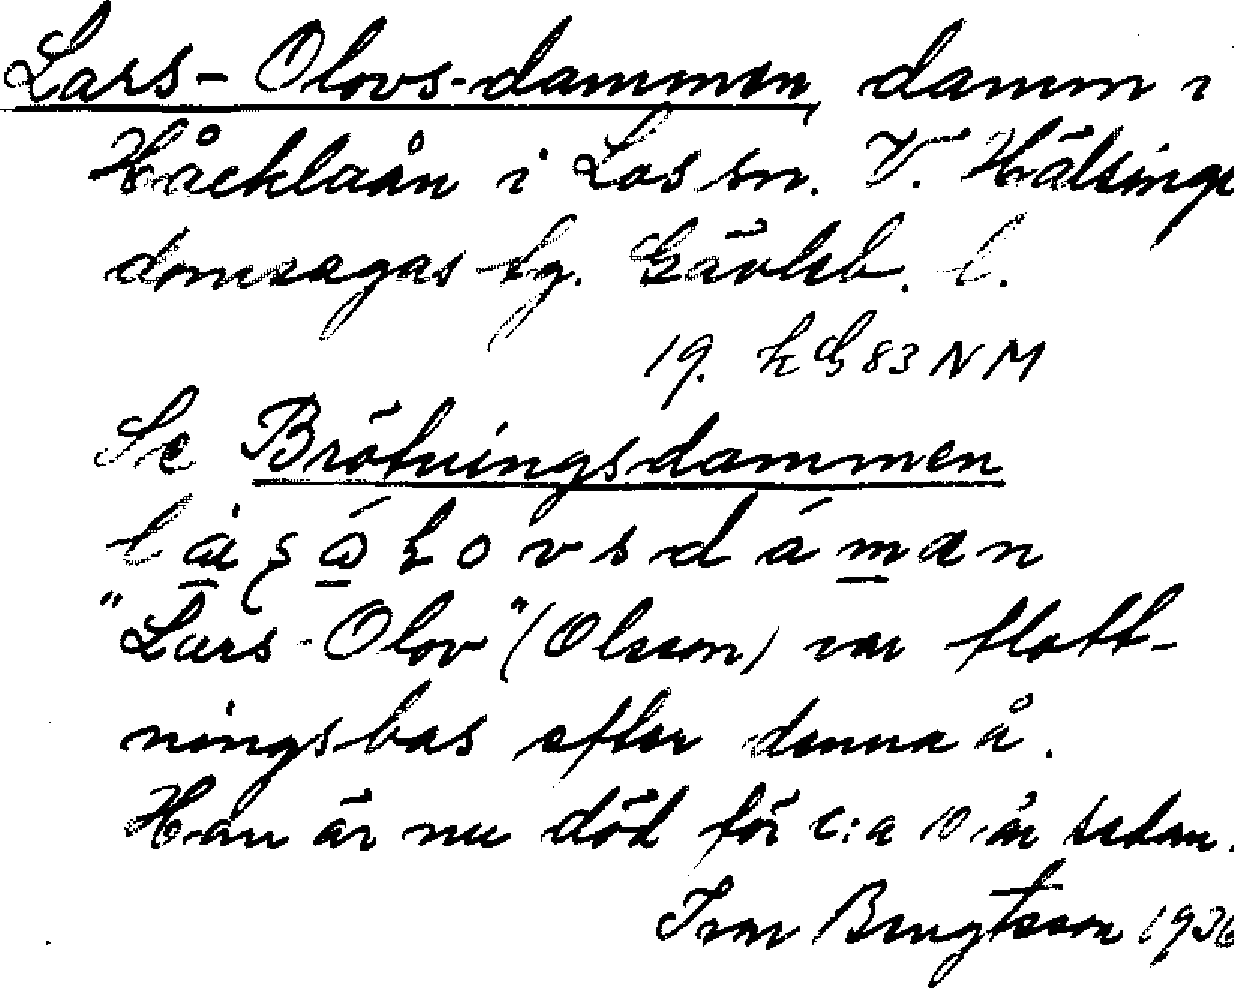 Lars-Olovs-dammen, damm i
Håcklaån i Los sn. V. Hälsinge
domsagas tg. Gävleb. l.
19. k G 83 NM
Se Brötningsdammen
"Lars-Olov" (Olsson) var flott-
ningsbas efter denna å.
Han är nu död för c:a 10 år sedan.
Ivar Bengtsson 1936